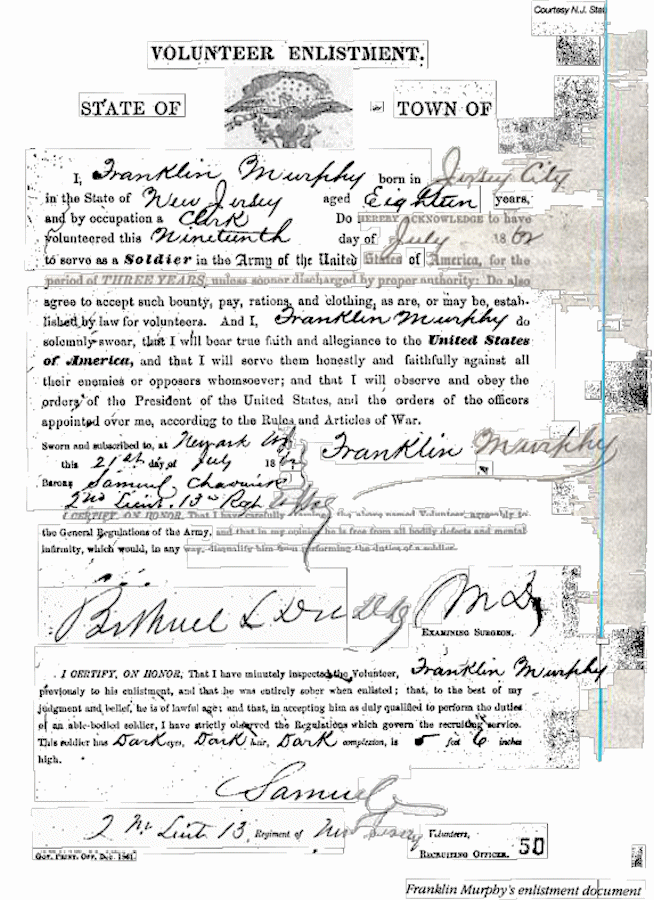 Courtesy N.J. Stat
VOLUNTEER ENLISTMENT.
STATE OF TOWN OF
I, Franklin Murphy born in Jersey City
in the State of New Jersey aged Eighteen years,
and by occupation a Clerk Do HEREBY ACKNOWLEDGE to have
volunteered this Nineteenth day of July 1862
to serve as a Soldier in the Army of the United States of America, for the
period of THREE YEARS, unless sooner discharged by proper authority: Do also
agree to accept such bounty, pay, rations, and clothing, as are, or may be, estab-
lished by law for volunteers. And I, Franklin Murphy do
solemnly swear, that I will bear true faith and allegiance to the United States
of America, and that I will serve them honestly and faithfully against all
their enemies or opposers whomsoever; and that I will observe and obey the
orders of the President of the United States, and the orders of the officers
appointed over me, according to the Rules and Articles of War.
Sworn and subscribed to, at Newark
this 21st day of July 1862 Franklin Murphy
BEFORE Samuel
2nd Lieut. 13th Regt
I CERTIFY, ON HONOR, That I have carefully the above named Volunteer, agreeably to
the General Regulations of the Army, and that in my opinion he is free from all bodily defects and mental
infirmity, which would, in any way, disqualify him from performing the duties of a soldier.
M D
EXAMINING SURGEON.
I CERTIFY, ON HONOR, That I have minutely inspected the Volunteer, Franklin Murphy
previously to his enlistment, and that he was entirely sober when enlisted; that, to the best of my
judgment and belief, he is of lawful age; and that, in accepting him as duly qualified to perform the duties
of an able-bodied soldier, I have strictly observed the Regulations which govern the recruiting service.
This soldier has Dark eyes, Dark hair, Dark complexion, is 5 feet 6 inches
high.
Samuel
2 Lieut 13 Regiment of New Jersey Volunteers,
RECRUITING OFFICER. 50
GOV. PRINT. OFF. Dec. 1861.
Franklin Murphy's enlistment document